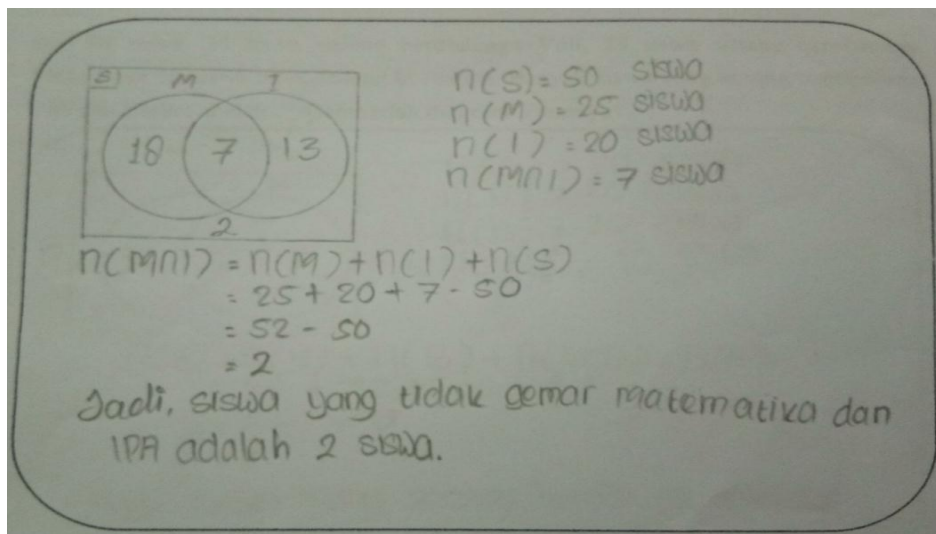 S M I
18 7 13
2
n(S) = 50 siswa
n(M) = 25 siswa
n(I) = 20 siswa
n(M∩I) = 7 siswa
n(M∩I) = n(M) + n(I) + n(S)
= 25 + 20 + 7 - 50
= 52 - 50
= 2
Jadi, siswa yang tidak gemar matematika dan
IPA adalah 2 siswa.